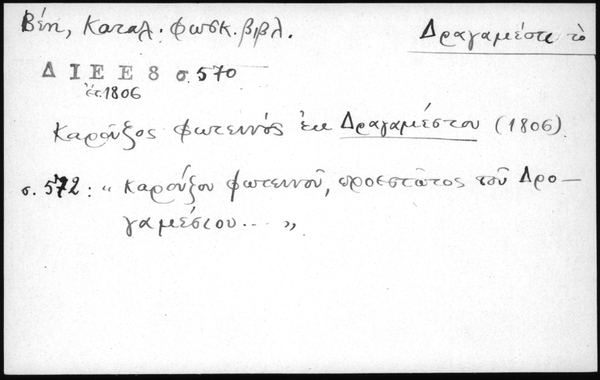 Βέη, Καταλ. φωσκ. βιβλ.
Δραγαμέστε τὸ
ΔΙΕΕ 8 σ. 570
ἔτ. 1806
Καροῦζος Φωτεινός ἐκ Δραγαμέστου (1806)
σ. 572: "Καρούζου φωτεινοῦ, προεστῶτος τοῦ Δρο-
γαμέστου... "